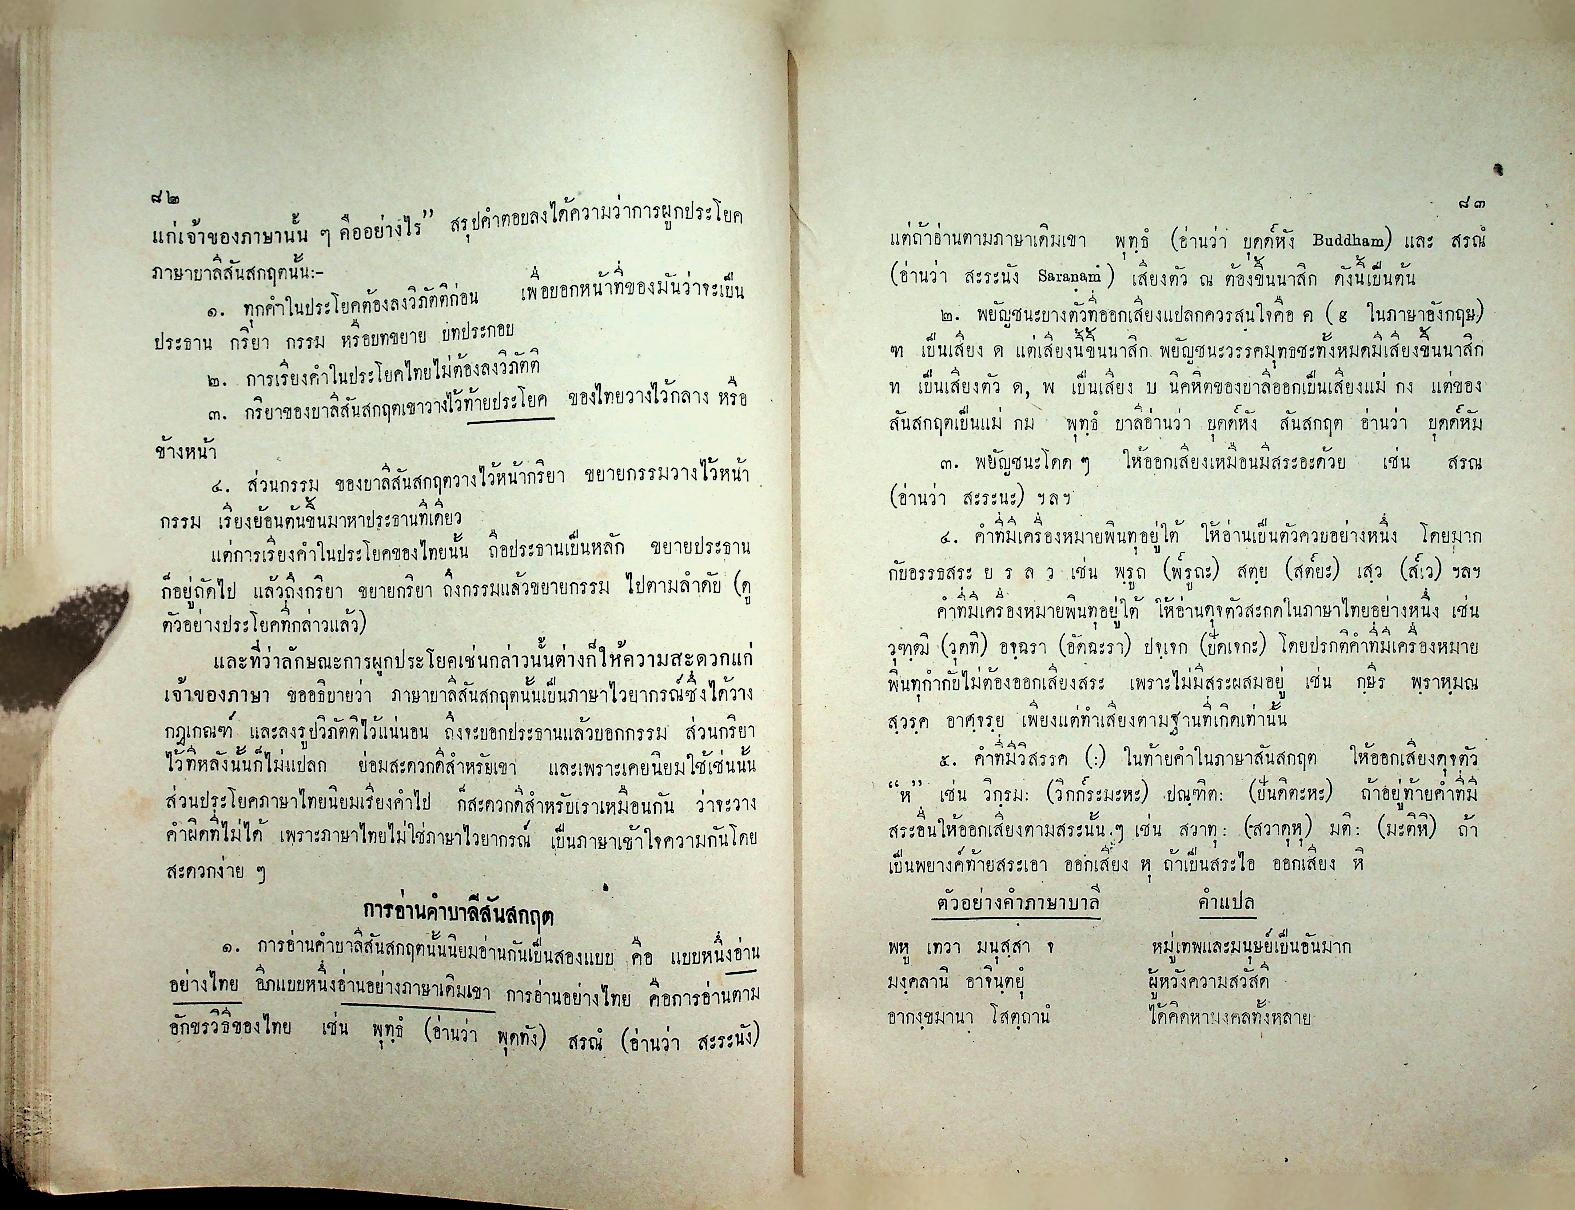 ๘๒
แก่เจ้าของภาษานั้น ๆ คืออย่างไร” สรุปคำตอบลงได้ความว่าการผูกประโยค
ภาษาบาลีสันสกฤตนั้น:–
๑. ทุกคำในประโยคต้องลงวิภัตติก่อน เพื่อบอกหน้าที่ของมันว่าจะเป็น
ประธาน กริยา กรรม หรือบทขยาย บทประกอบ
๒. การเรียงคำในประโยคไทยไม่ต้องลงวิภัตติ
๓. กริยาของบาลีสันสกฤตเขาวางไว้ท้ายประโยค ของไทยวางไว้กลาง หรือ
ข้างหน้า
๔. ส่วนกรรม ของบาลีสันสกฤตวางไว้หน้ากริยา ขยายกรรมวางไว้หน้า
กรรม เรียงย้อนต้นขึ้นมาหาประธานทีเดียว
แต่การเรียงคำในประโยคของไทยนั้น ถือประธานเป็นหลัก ขยายประธาน
ก็อยู่ถัดไป แล้วถึงกริยา ขยายกริยา ถึงกรรมแล้วขยายกรรม ไปตามลำดับ (ดู
ตัวอย่างประโยคที่กล่าวแล้ว)
และที่ว่าลักษณะการผูกประโยคเช่นกล่าวนั้นต่างก็ให้ความสะดวกแก่
เจ้าของภาษา ขออธิบายว่า ภาษาบาลีสันสกฤตนั้นเป็นภาษาไวยากรณ์ซึ่งได้วาง
กฎเกณฑ์ และลงรูปวิภัตติไว้แน่นอน ถึงจะบอกประธานแล้วบอกกรรม ส่วนกริยา
ไว้ทีหลังนั้นก็ไม่แปลก ย่อมสะดวกดีสำหรับเขา และเพราะเคยนิยมใช้เช่นนั้น
ส่วนประโยคภาษาไทยนิยมเรียงคำไป ก็สะดวกดีสำหรับเราเหมือนกัน ว่าจะวาง
คำผิดที่ไม่ได้ เพราะภาษาไทยไม่ใช่ภาษาไวยากรณ์ เป็นภาษาเข้าใจความกันโดย
สะดวกง่าย ๆ
การอ่านคำบาลีสันสกฤต
๑. การอ่านคำบาลีสันสกฤตนั้นนิยมอ่านกันเป็นสองแบบ คือ แบบหนึ่งอ่าน
อย่างไทย อีกแบบหนึ่งอ่านอย่างภาษาเดิมเขา การอ่านอย่างไทย คือการอ่านตาม
อักขรวิธีของไทย เช่น พุทฺธํ (อ่านว่า พุดทัง) สรณํ (อ่านว่า สะระนัง)
๘๓
แต่ถ้าอ่านตามภาษาเดิมเขา พุทฺธํ (อ่านว่า บุดด์หัง Buddham) และ สรณํ
(อ่านว่า สะระนัง Saranam) เสียงตัว ณ ต้องขึ้นนาสิก ดังนี้เป็นต้น
๒. พยัญชนะบางตัวที่ออกเสียงแปลกควรสนใจคือ ค (g ในภาษาอังกฤษ)
ฑ เป็นเสียง ด แต่เสียงนี้ขึ้นนาสิก พยัญชนะวรรคมุทธชะทั้งหมดมีเสียงขึ้นนาสิก
ท เป็นเสียงตัว ด, พ เป็นเสียง บ นิคหิตของบาลีออกเป็นเสียงแม่ กง แต่ของ
สันสกฤตเป็นแม่ กม พุทฺธํ บาลีอ่านว่า บุดด์หัง สันสกฤต อ่านว่า บุดด์หัม
๓. พยัญชนะโดด ๆ ให้ออกเสียงเหมือนมีสระอะด้วย เช่น สรณ
(อ่านว่า สะระนะ) ฯลฯ
๔. คำที่มีเครื่องหมายพินทุอยู่ใต้ ให้อ่านเป็นตัวควบอย่างหนึ่ง โดยมาก
กับอรรธสระ ย ร ล ว เช่น พฺรูถ (พ์รูถะ) สตฺย (สต์ยะ) เสฺว (ส์เว) ฯลฯ
คำที่มีเครื่องหมายพินทุอยู่ใต้ ให้อ่านดุจตัวสะกดในภาษาไทยอย่างหนึ่ง เช่น
วุฑฺฒิ (วุดทิ) อจฺฉรา (อัดฉะรา) ปจฺเจก (ปัดเจกะ) โดยปรกติคำที่มีเครื่องหมาย
พินทุกำกับไม่ต้องออกเสียงสระ เพราะไม่มีสระผสมอยู่ เช่น กฺษิร พฺราหฺมณ
สฺวรฺค อาศฺจรฺย เพียงแต่ทำเสียงตามฐานที่เกิดเท่านั้น
๕. คำที่มีวิสรรค (:) ในท้ายคำในภาษาสันสกฤต ให้ออกเสียงดุจตัว
“ห” เช่น วิกฺรมะ: (วิกก์ระมะหะ) ปณฺฑิต: (ปันดิตะหะ) ถ้าอยู่ท้ายคำที่มี
สระอื่นให้ออกเสียงตามสระนั้น ๆ เช่น สวาทุ: (สวาดุหุ) มติ: (มะติหิ) ถ้า
เป็นพยางค์ท้ายสระเอา ออกเสียง หุ ถ้าเป็นสระไอ ออกเสียง หิ
ตัวอย่างคำภาษาบาลี คำแปล
พหู เทวา มนุสฺสา จ หมู่เทพและมนุษย์เป็นอันมาก
มงฺคลานิ อาจินฺตยุํ ผู้หวังความสวัสดิ
อากงฺขมานา โสตฺถานํ ได้คิดหามงคลทั้งหลาย